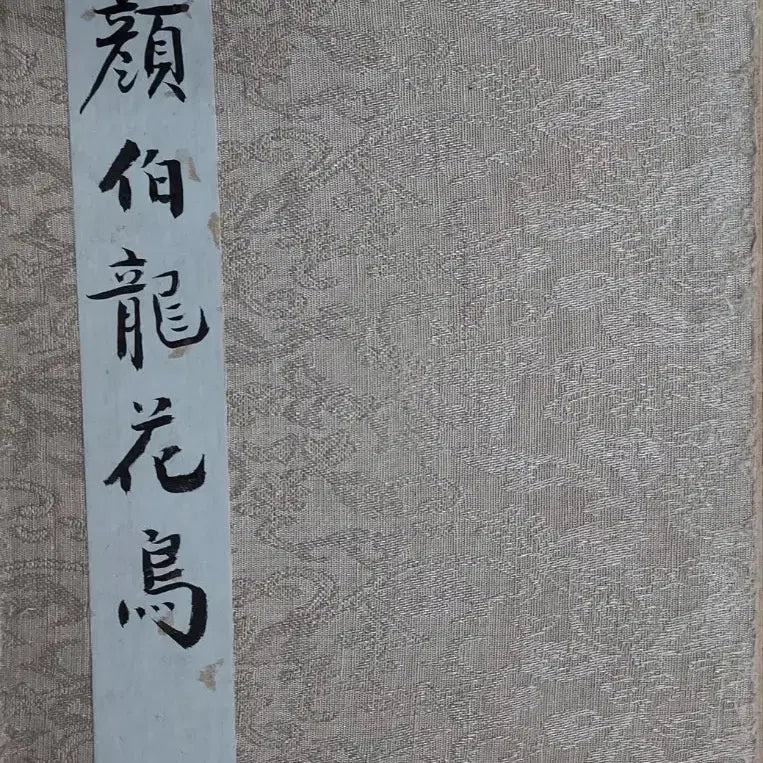 顔伯龍花鳥